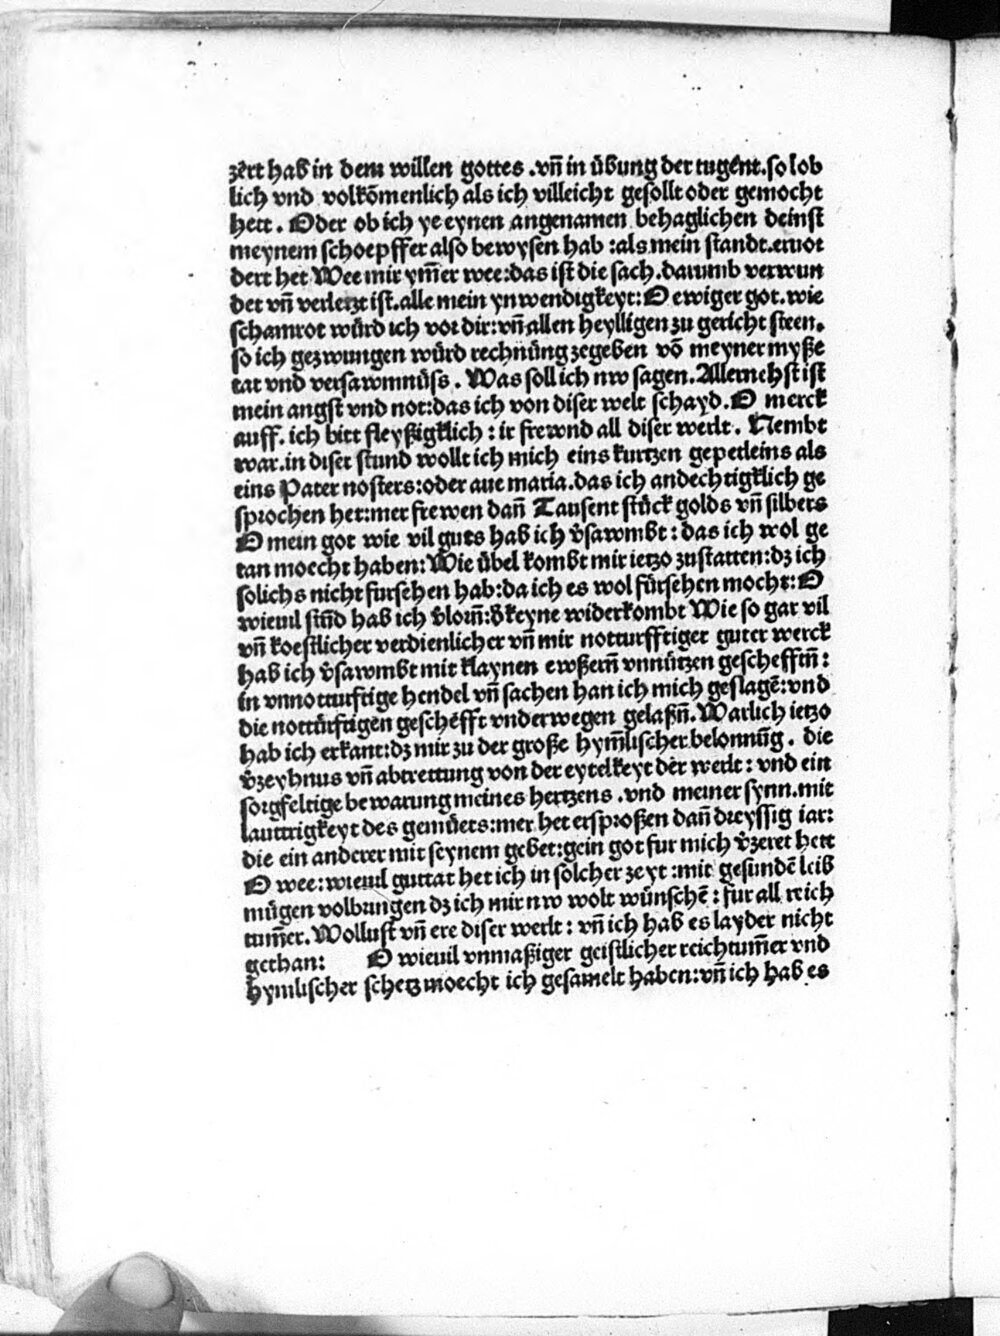 zert hab in dem willen gottes .vñ in übung der tugent.so lob
lich vnd volkōmenlich als ich villeicht gesollt oder gemocht
hett . Oder ob ich ye eynen angenamen behaglichen deinst
meynem schoepffer also bewysen hab :als mein standt.ervor
dert het Wee mir ym̄er wee:das ist die sach.darumb verwun
det vñ verletzt ist.alle mein ynwendigkeyt: O ewiger got.wie
schamrot würd ich vor dir:vñ allen heylligen zu gericht steen.
so ich gezwungen würd rechnüng zegeben vō meyner myße
tat vnd versawmnüss . Was soll ich nw sagen. Allernehst ist
mein angst vnd not:das ich von diser welt schayd. O merck
auff. ich bitt fleyßigklich : ir frewnd all diser werlt . Nembt
war.in diser stund wollt ich mich eins kurtzen gepetleins als
eins Pater nosters:oder aue maria.das ich andechtigklich ge
sprochen het:mer frewen dañ Tausent stück golds vñ silbers
O mein got wie vil guts hab ich v̄sawmbt : das ich wol ge
tan moecht haben: Wie übel kombt mir ietzo zustatten:dz ich
solichs nicht fursehen hab:da ich es wol fürsehen mocht: O
wieuil stūd hab ich v̄lorn̄:d̄ keyne widerkombt Wie so gar vil
vñ koestlicher verdienlicher vñ mir notturfftiger guter werck
hab ich v̄sawmbt mit klaynen ewßern̄ vnnützen gescheff​tn̄ :
in vnnotturftige hendel vñ sachen han ich mich geslagē:vnd
die nottürftigen geschefft vnderwegen gelaßn̄. Warlich ietzo
hab ich erkant:dz mir zu der große hym̄lischer belonnūg . die
v̄zeyhnus vñ abtrettung von der eytelkeyt der werlt : vnd ein
sorgfeltige bewarung meines hertzens .vnd meiner synn.mit
lauttrigkeyt des gemüets:mer het ersproßen dañ dreyssig iar:
die ein anderer mit seynem gebet:gein got fur mich v̄zeret hett
O wee:wieuil guttat het ich in solcher zeyt :mit gesundē leib
mügen volbringen dz ich mir nw wolt wünschē : für all reich
tum̄er. Wollust vñ ere diser werlt : vñ ich hab es layder nicht
gethan: O wieuil vnmaßiger geistlicher reichtum̄er vnd
hymlischer schetz moecht ich gesamelt haben:vñ ich hab es